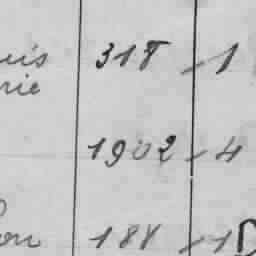 uis 318 - 1
rie
1902 - 4
on 188 - 1